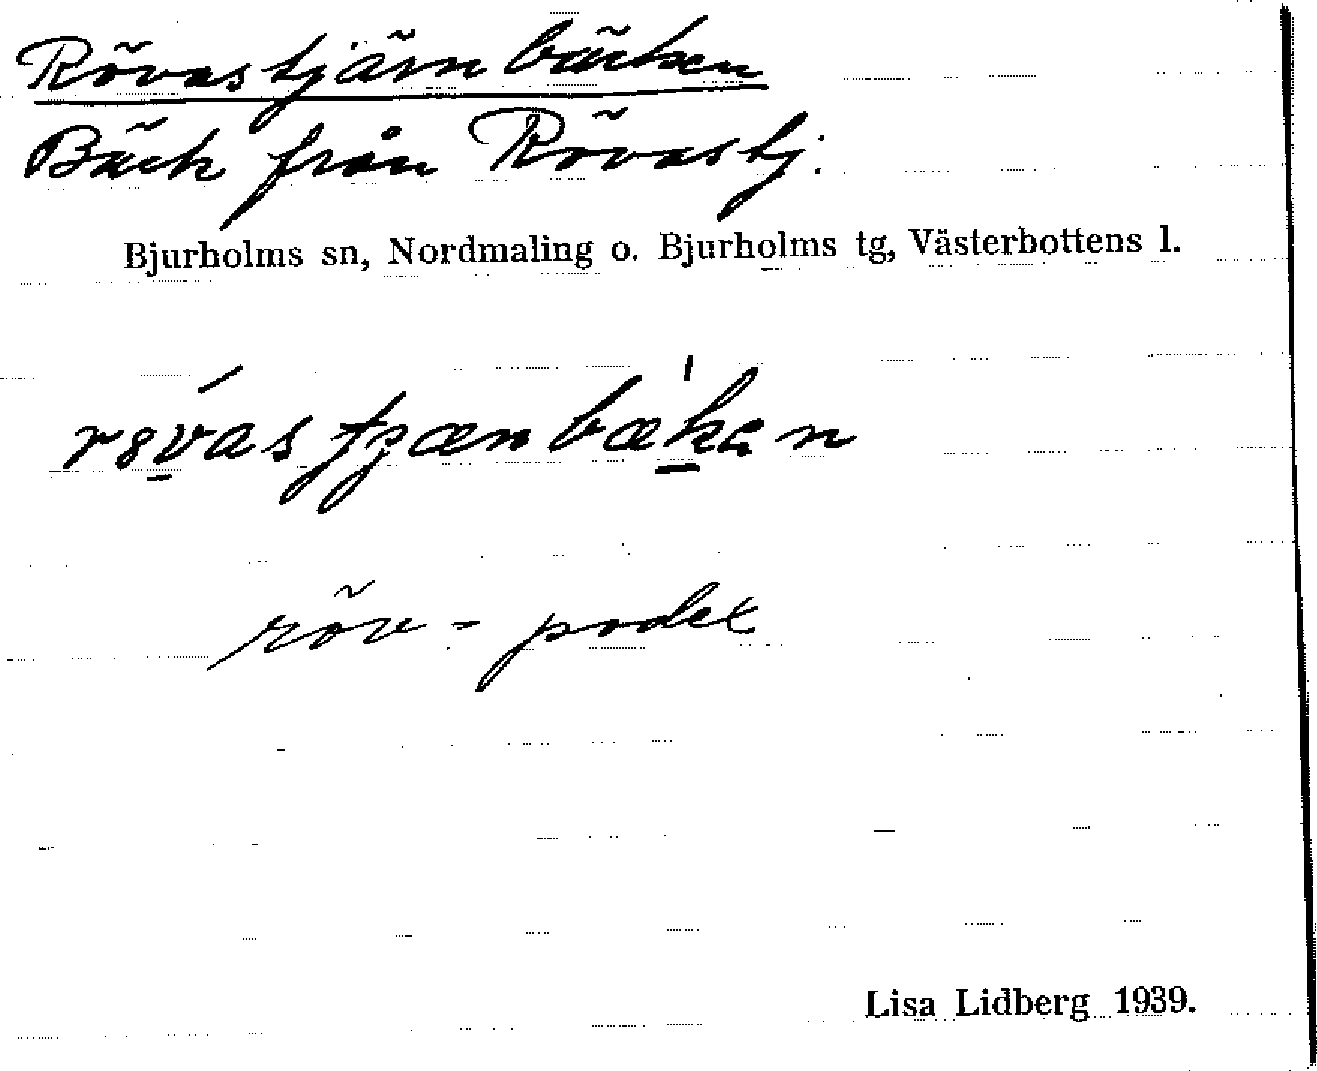 Rövastjärnbäcken
Bäck från Rövastj.
Bjurholms sn, Nordmaling o. Bjurholms tg, Västerbottens l.
röv - podex
Lisa Lidberg 1939.